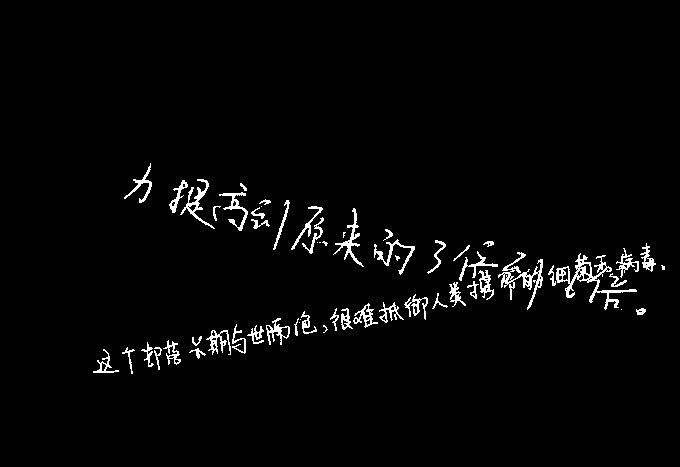 力提高到原来的3倍 倍。
这个部落长期与世隔绝,很难抵御人类携带的细菌和病毒.